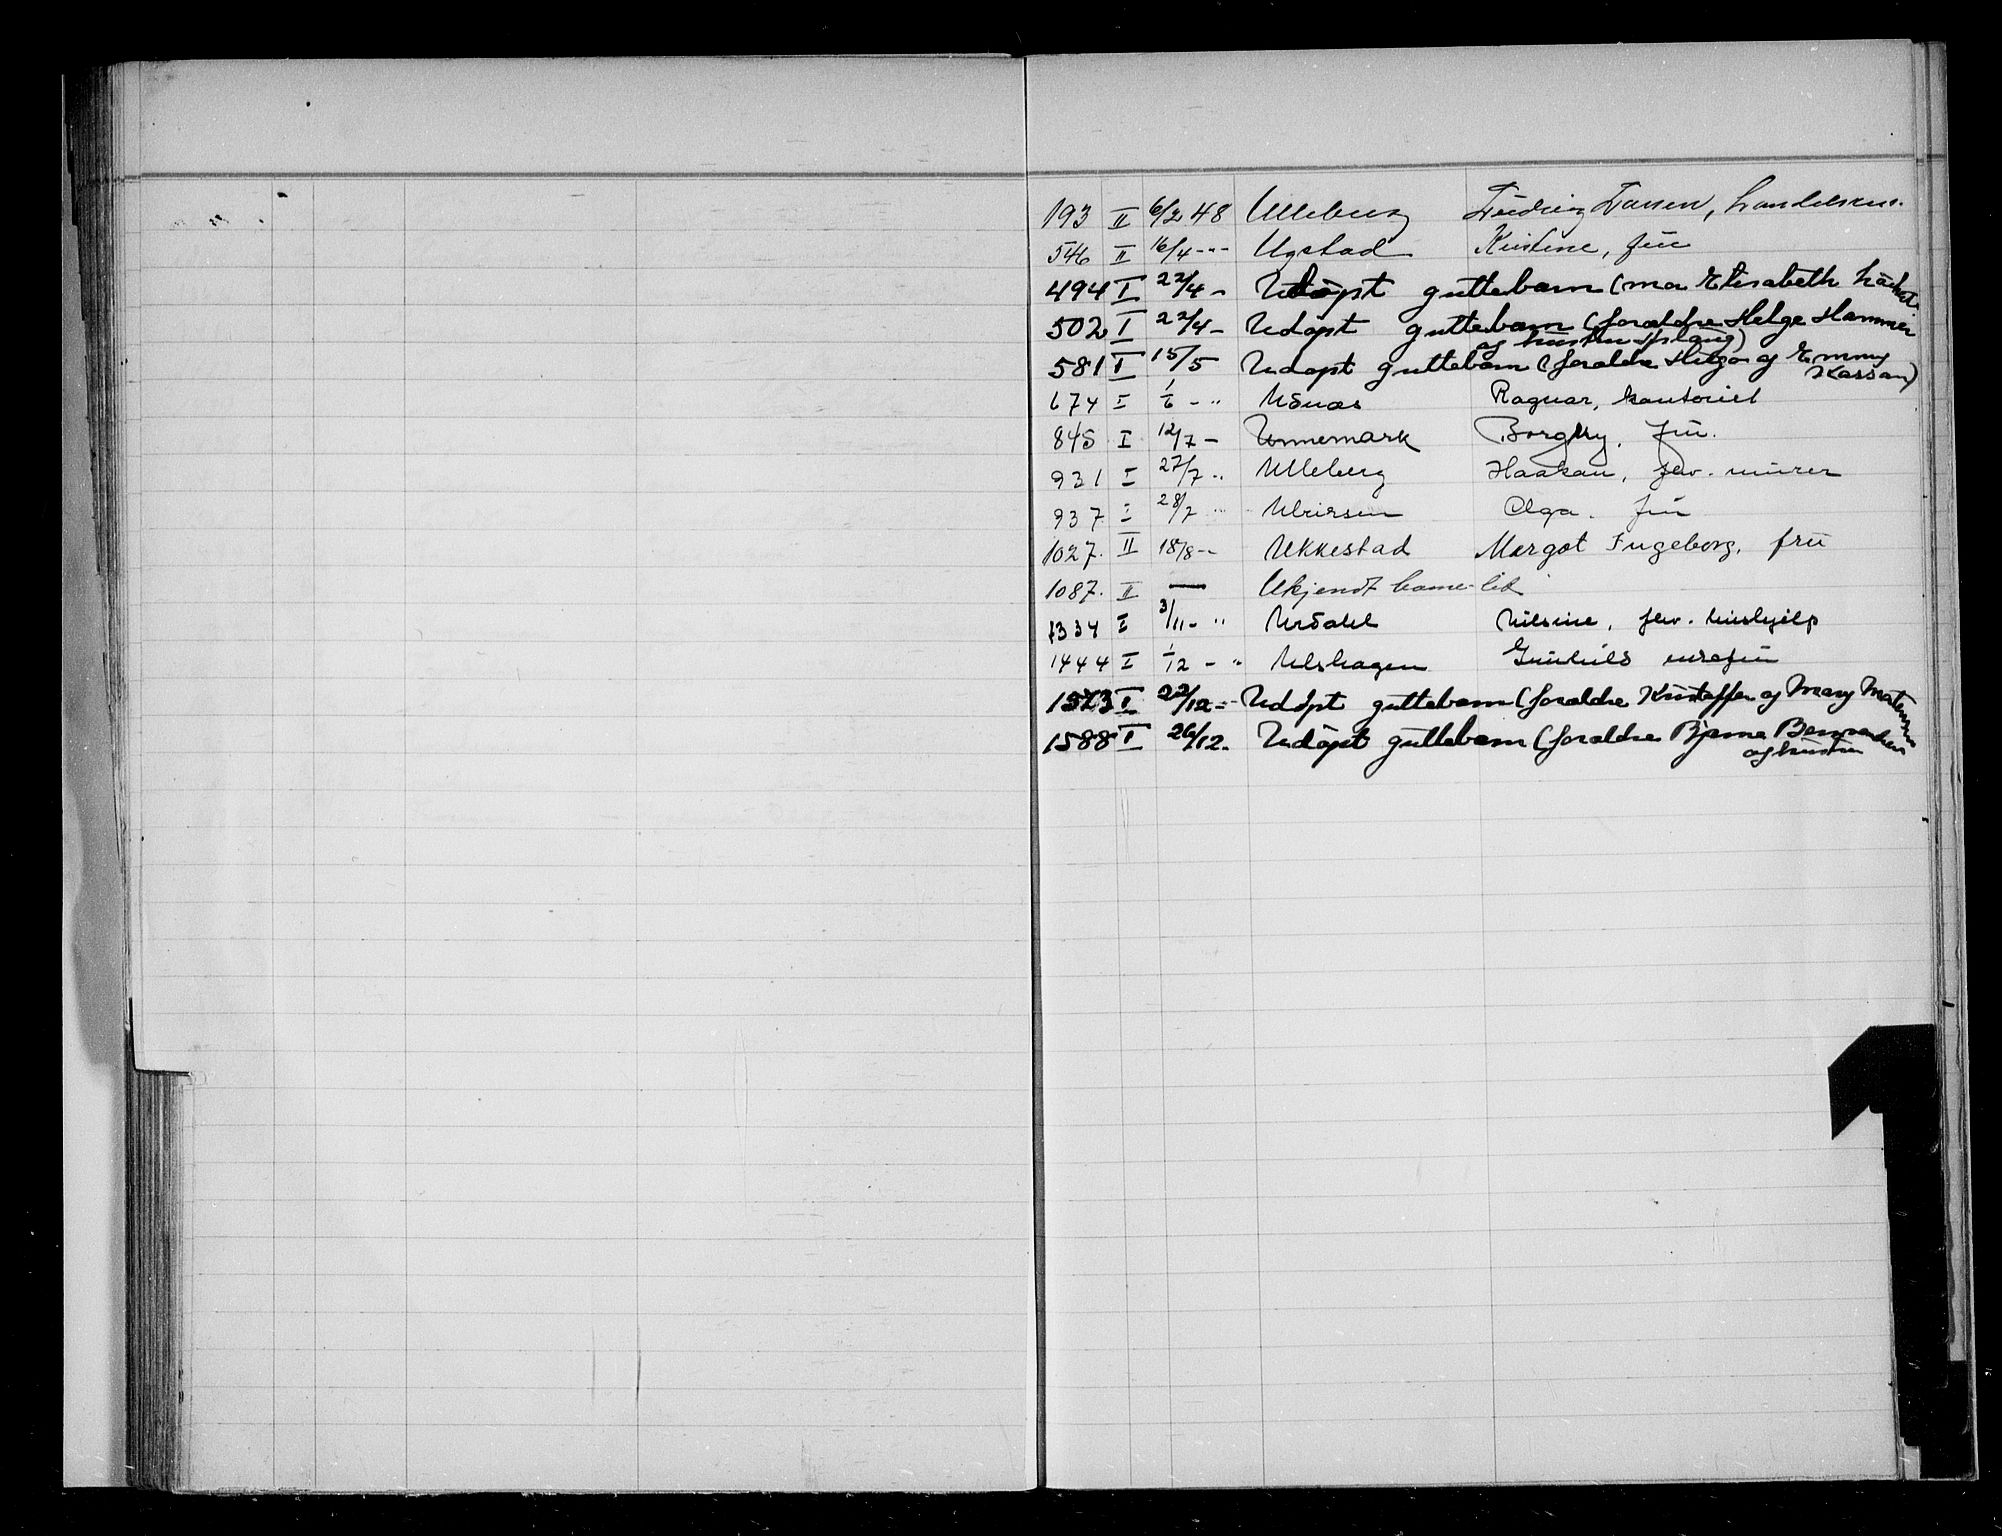 193 II 6/2 48 Ulleberg Fredrig Larsen,
546 II 16/4 --- Ugstad Kristine, frü
494 I 22/4 - Udöpt guttebarn (mor Elisabeth
502 I 22/4 - Udöpt guttebarn (foraldre Helge Hammer
og hustru
581 I 15/5 Udopt guttebarn (foraldre Hugo og Emmy
Kassan)
674 I 1/6 - " Ragnar, kontorist
845 I 12/7 - Unnemark Borghy. frü.
931 I 27/7 " Ulleberg Haakan, fhv. murer
937 I 28/7 Ulrirsen Olga. frü
1027. II 18/8 -- Ukkestad Margot Ingeborg, frü
1087. II — Ukjendt barne-lik
1334 I 3/11 - " Urdahl Nilsine, fhv. hushjelp
1444 I 1/12 - " Ulshagen Gunhild
1573 I 22/12 - Udöpt guttebarn (foraldre Kristoffer og Mary
1588 I 26/12. Udöpt guttebarn (foraldre Bjarne
og hustru